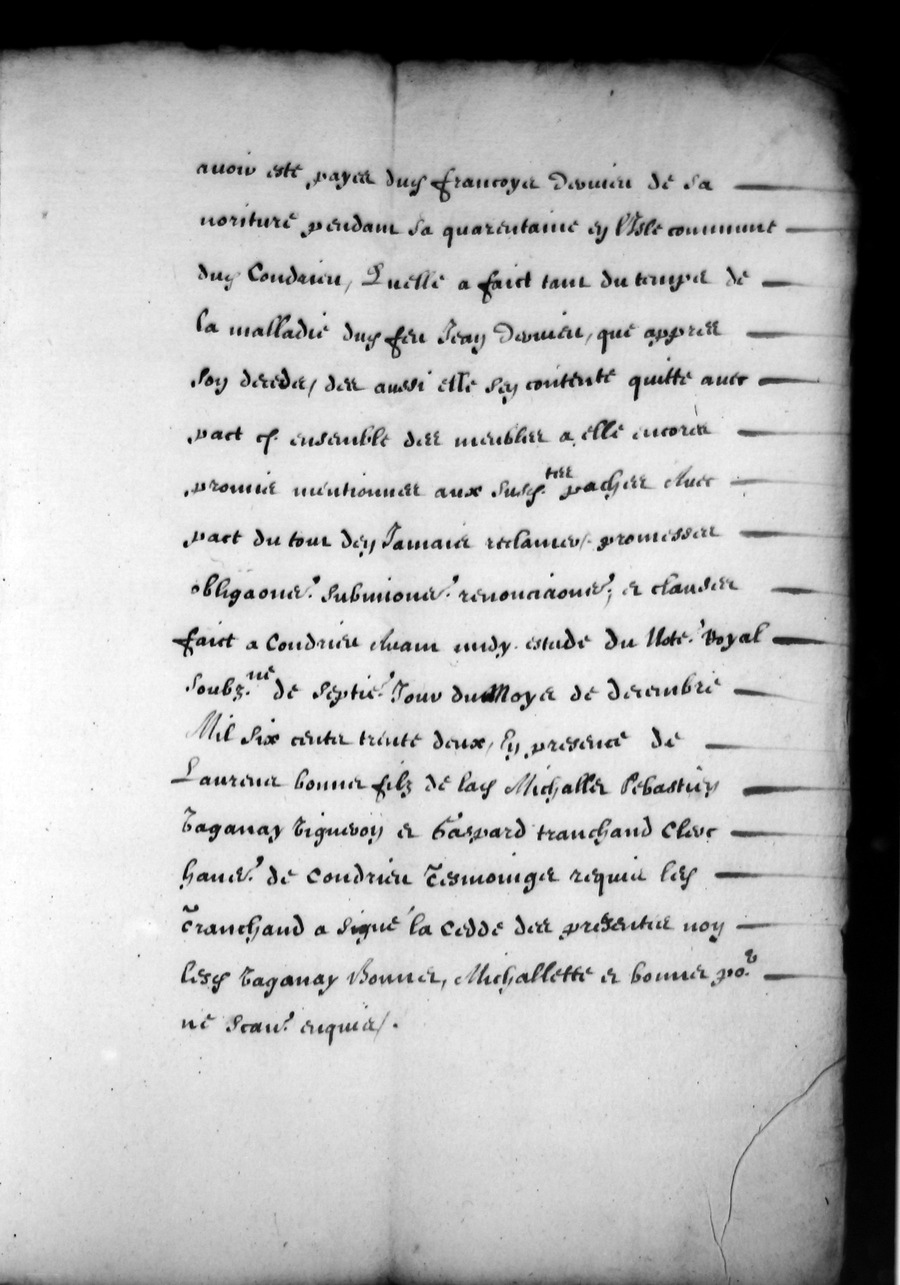 avoir esté payée dud francoys Dervieu de sa
noriture pendant sa quarentaine en l'Isle commune
dud Condrieu, Quelle a faict tant du temps de
la malladie dud feu Jean Dervieu, que appres
son deceds, des aussi elle sen contente quitte avec
pact &c. ensemble des meubles a elle encores
promis mentionnes aux susd.tes paches Avec
pact du tout den Jamais reclamer/. promesses
obligaons.r submions.r renonciaons.r, et clauses
faict a Condrieu Avant midy estude du Note.r Royal
Soubz.né de Septie.r Jour du Moys de decembre
Mil Six cents trente deux, En presence de
Laurens bonnet filz de lad Michalle Sebastien
Taganay Vigneron et Gaspard tranchand Clerc
hans.r de Condrieu Tesmoings requis led
Tranchand a signé la Cedde des presentes non
lesd Taganay Bonnet, Michallette et bonnet po.r
ne scav.r enquis/.